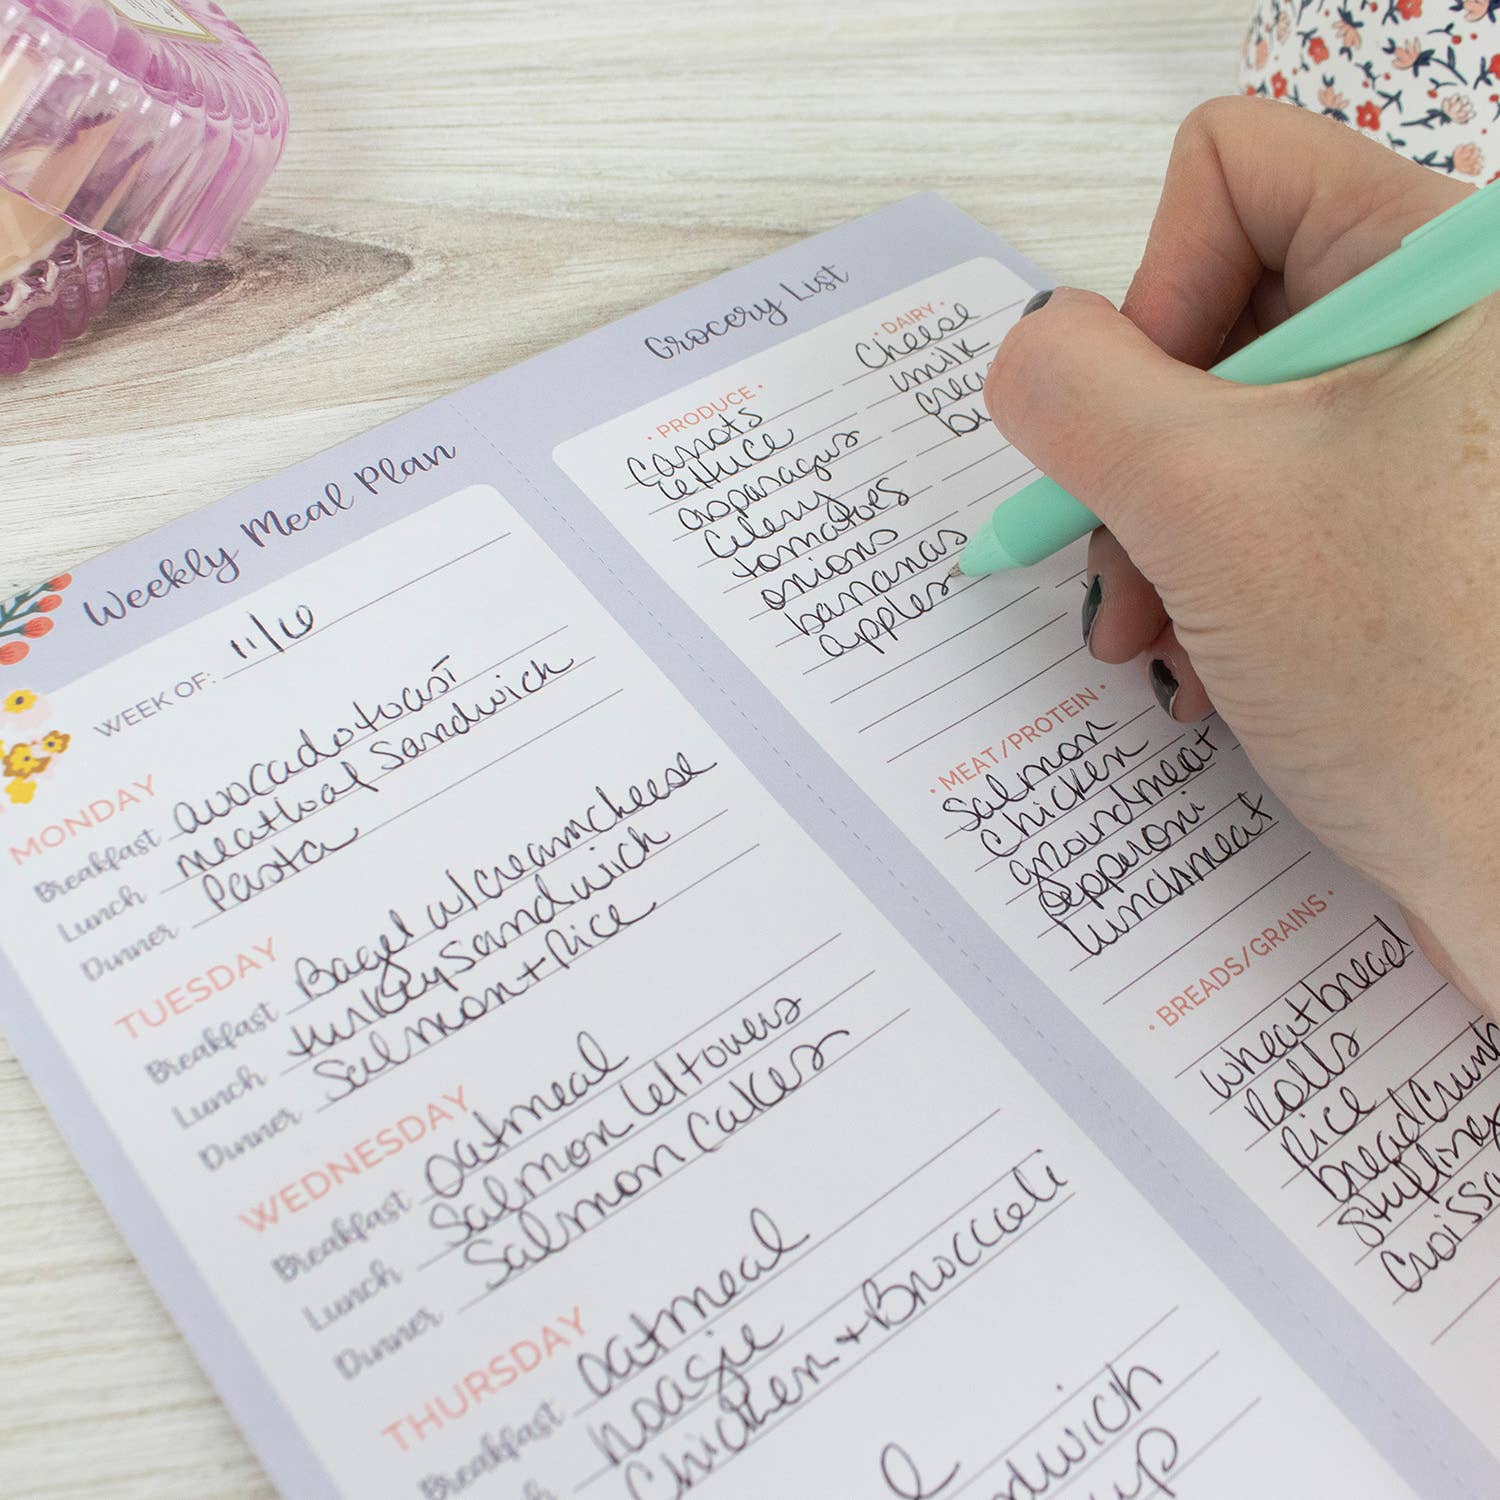 Weekly Meal Plan
WEEK OF: 11/16
MONDAY
Breakfast avocado toast
Lunch meatloaf sandwich
Dinner Pasta
TUESDAY
Breakfast Bagel w/ creamcheese
Lunch turkey sandwich
Dinner Salmon + Rice
WEDNESDAY
Breakfast oatmeal
Lunch Salmon leftovers
Dinner Salmon Cakes
THURSDAY
Breakfast oatmeal
hoagie
Chicken + Broccoli
Grocery List
• PRODUCE •
carrots
lettuce
asparagus
celery
tomatoes
onions
bananas
apples
• DAIRY •
Cheese
milk
• MEAT/PROTEIN •
Salmon
chicken
ground meat
pepperoni
lunchmeat
• BREADS/GRAINS •
wheat bread
Rolls
Rice